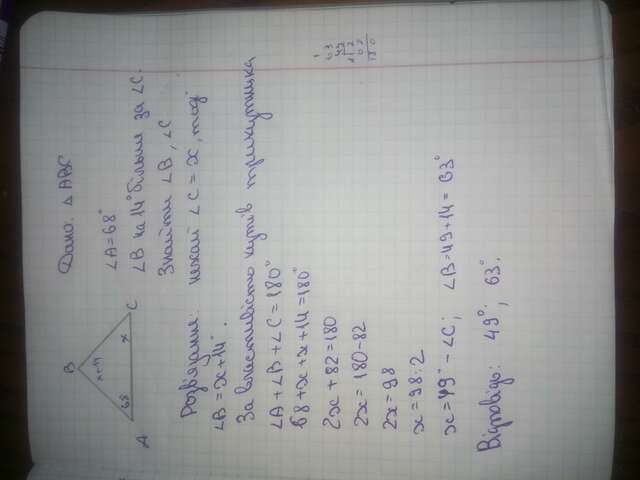 Дано: △ABC
∠A=68°
∠B на 14° більше за ∠C.
Знайти ∠B, ∠C
B
x+14
68
x
A
C
Розв'язання: нехай ∠C = x, тоді
∠B = x+14°.
За властивістю кутів трикутника
∠A+∠B+∠C=180°
68+x+x+14=180°
2x+82=180
2x=180-82
2x=98
x=98:2
x=49°-∠C; ∠B=49+14=63°
Відповідь: 49°; 63°.
63
49
112
180